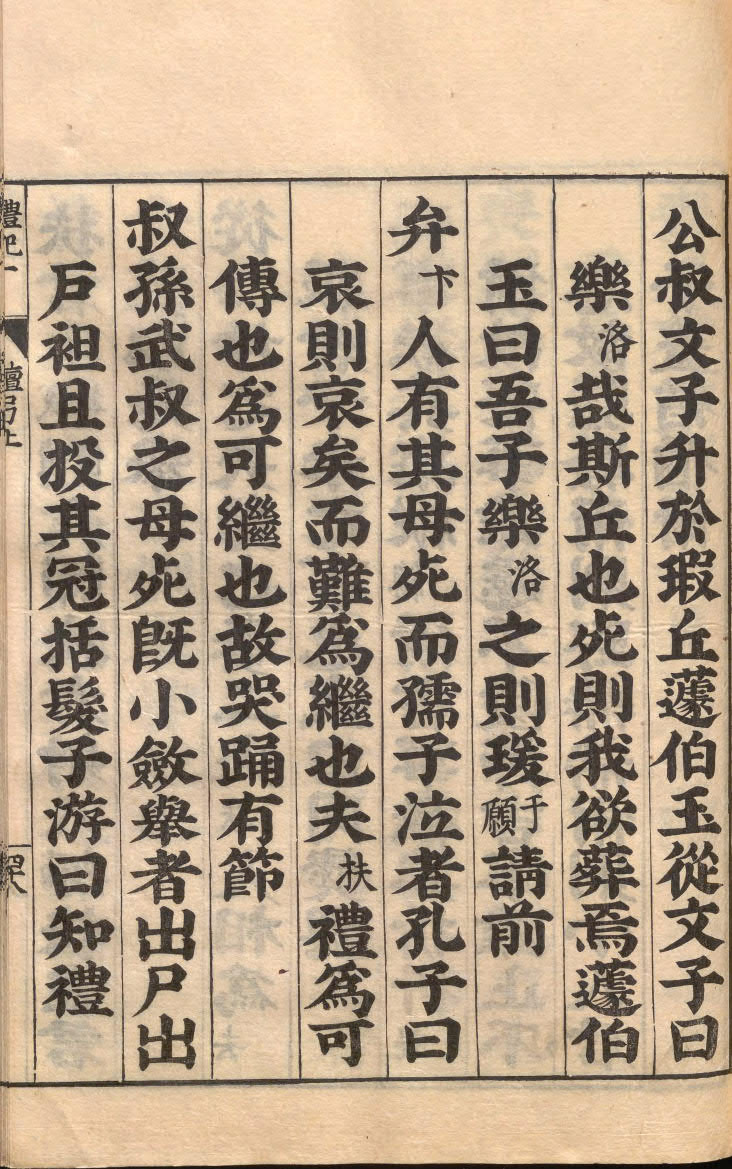 公叔文子升於瑕丘蘧伯玉從文子曰
樂洛哉斯丘也死則我欲葬焉蘧伯
玉曰吾子樂洛之則瑗于願請前
弁卞人有其母死而孺子泣者孔子曰
哀則哀矣而難爲繼也夫扶禮爲可
傳也爲可繼也故哭踊有節
叔孫武叔之母死旣小斂舉者出尸出
戶袒且投其冠括髮子游曰知禮
禮記一
檀弓上
四八